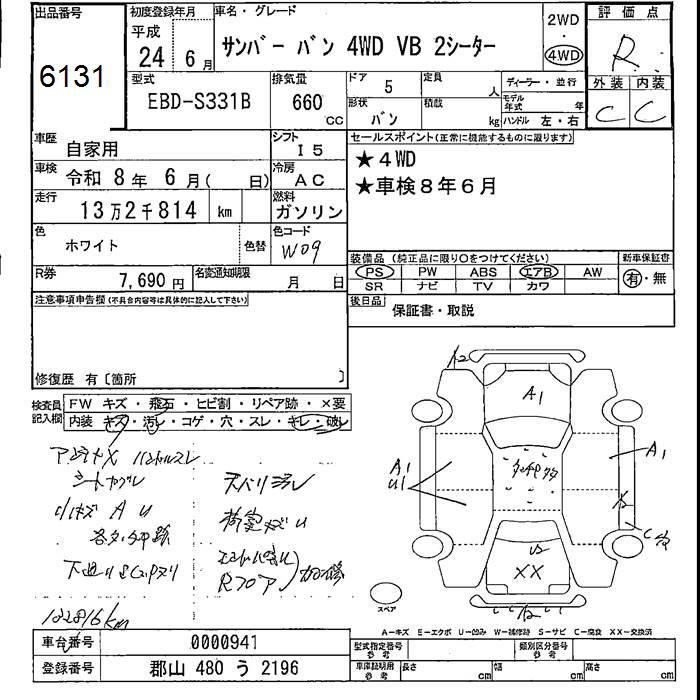 出品番号
6131
初度登録年月
平成
24 6月
車名・グレード
サンバー バン 4WD VB 2シーター
2WD
・
4WD
評価点
R
外装 内装
C C
型式
EBD-S331B
排気量
660
CC
ドア 5
形状 バン
定員 人
積載 kg
ディーラー・並行
モデル年式 年
ハンドル 左・右
車歴 自家用
シフト I5
車検 令和 8年 6月( 日)
冷房 AC
走行 13万2千814 km
燃料 ガソリン
色 ホワイト
色替
色コード W09
R券 7,690円
名変通知期限 月 日
セールスポイント(正常に機能するものに限ります)
★4WD
★車検8年6月
装備品 (純正品に限り〇をつけてください)
PS PW ABS エアB AW
SR ナビ TV カワ
新車保証書
有・無
後日品
保証書・取説
注意事項申告欄(不具合内容等は具体的に記入して下さい)
修復歴 有〔箇所 〕
検査員記入欄
FW キズ・飛石・ヒビ割・リペア跡・×要
内装 キズ・汚レ・コゲ・穴・スレ・キレ・破レ
ハンドルスレ
A U
132816km
A2
A1
A1
U1
A1
U2
XX
スペア
A-キズ E-エクボ U-凹み W-補修跡 S-サビ C-腐食 XX-交換済
車台番号 0000941
登録番号 郡山 480 う 2196
型式指定番号 参考
類別区分番号 参考
車庫証明用 参考
長さ cm
幅 cm
高さ cm